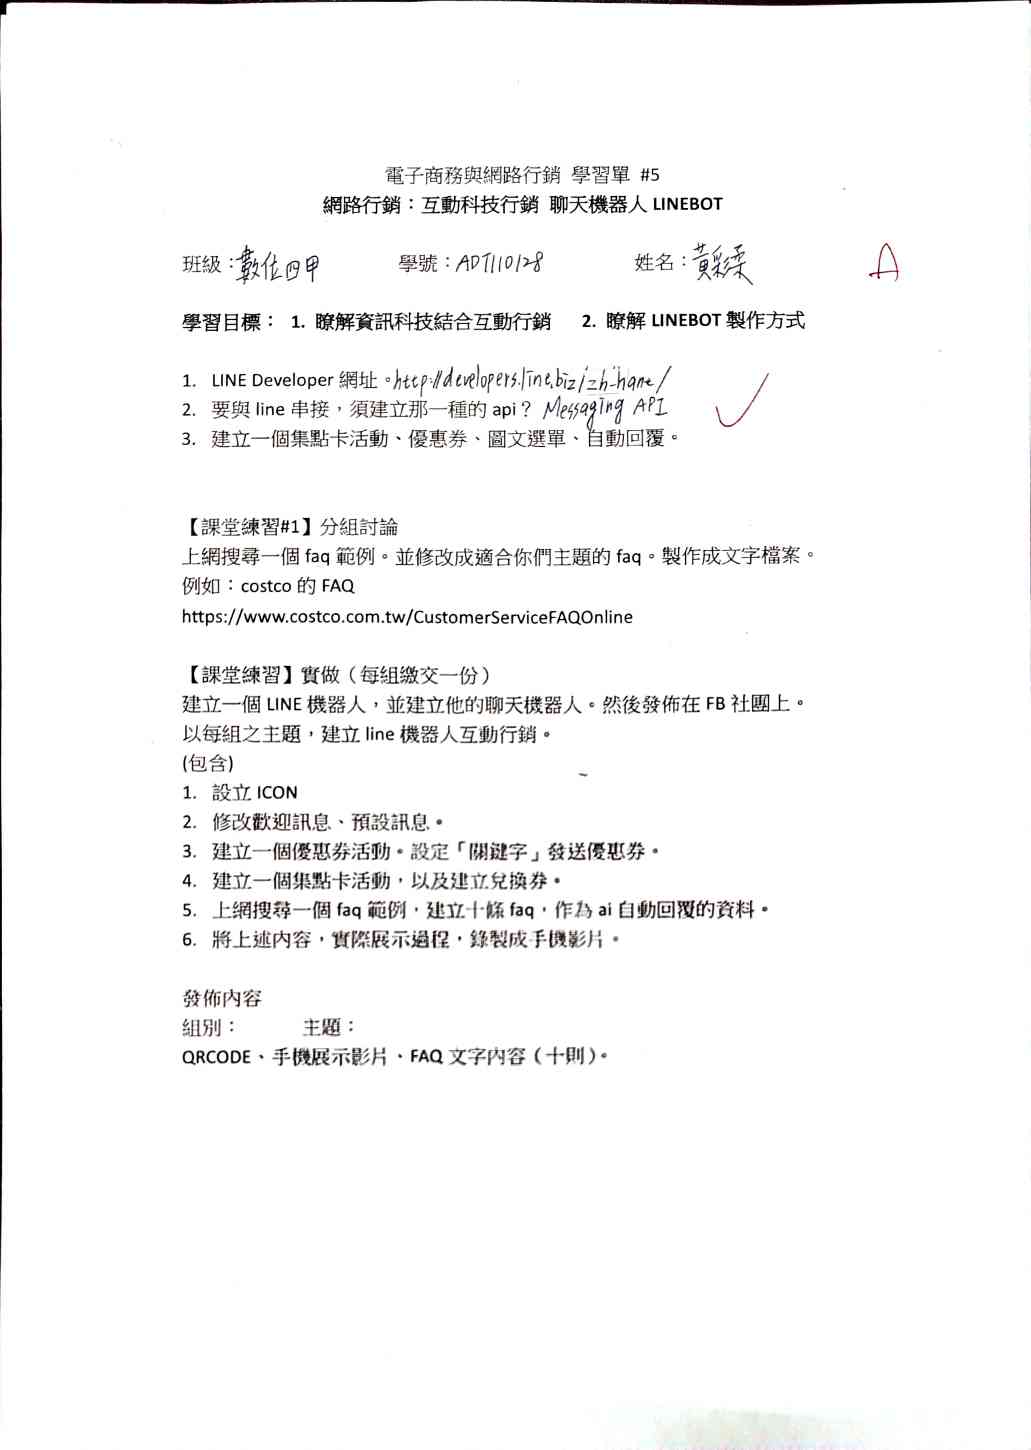 電子商務與網路行銷 學習單 #5
網路行銷：互動科技行銷 聊天機器人 LINEBOT
班級：數位四甲 學號：ADT110128 姓名：黃彩柔 A
學習目標： 1. 瞭解資訊科技結合互動行銷 2. 瞭解 LINEBOT 製作方式
1. LINE Developer 網址。http://developers.line.biz/zh-hant/
2. 要與 line 串接，須建立那一種的 api？ Messaging API
3. 建立一個集點卡活動、優惠券、圖文選單、自動回覆。
【課堂練習#1】分組討論
上網搜尋一個 faq 範例。並修改成適合你們主題的 faq。製作成文字檔案。
例如：costco 的 FAQ
https://www.costco.com.tw/CustomerServiceFAQOnline
【課堂練習】實做（每組繳交一份）
建立一個 LINE 機器人，並建立他的聊天機器人。然後發佈在 FB 社團上。
以每組之主題，建立 line 機器人互動行銷。
(包含)
1. 設立 ICON
2. 修改歡迎訊息、預設訊息。
3. 建立一個優惠券活動。設定「關鍵字」發送優惠券。
4. 建立一個集點卡活動，以及建立兌換券。
5. 上網搜尋一個 faq 範例，建立十條 faq，作為 ai 自動回覆的資料。
6. 將上述內容，實際展示過程，錄製成手機影片。
發佈內容
組別： 主題：
QRCODE、手機展示影片、FAQ 文字內容（十則）。